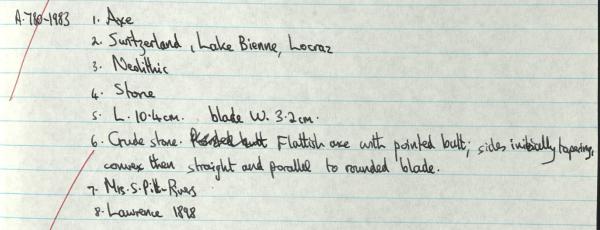 A.780-1983 1. Axe
2. Switzerland, Lake Bienne, Locraz
3. Neolithic
4. Stone
5. L. 10.4cm. blade W. 3.2cm.
6. Crude stone. Flattish axe with pointed butt; sides initially tapering,
convex then straight and parallel to rounded blade.
7. Mrs. S. Pitt-Rivers
8. Lawrence 1898